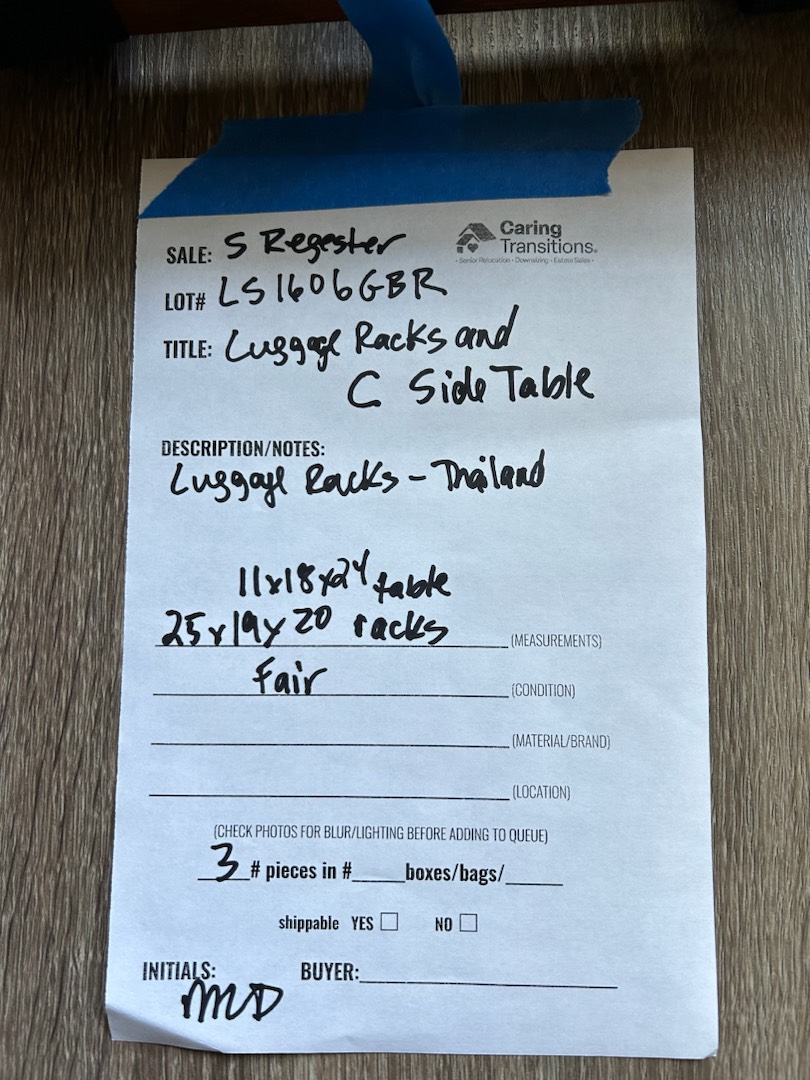 Caring
Transitions.
• Senior Relocation • Downsizing • Estate Sales •
SALE: S Regester
LOT# LS1606GBR
TITLE: Luggage Racks and
C Side Table
DESCRIPTION/NOTES:
Luggage Racks - Thailand
11x18x24 table
25x19x20 racks (MEASUREMENTS)
Fair (CONDITION)
(MATERIAL/BRAND)
(LOCATION)
(CHECK PHOTOS FOR BLUR/LIGHTING BEFORE ADDING TO QUEUE)
3 # pieces in #____ boxes/bags/____
shippable YES ☐ NO ☐
INITIALS: BUYER:____
MD